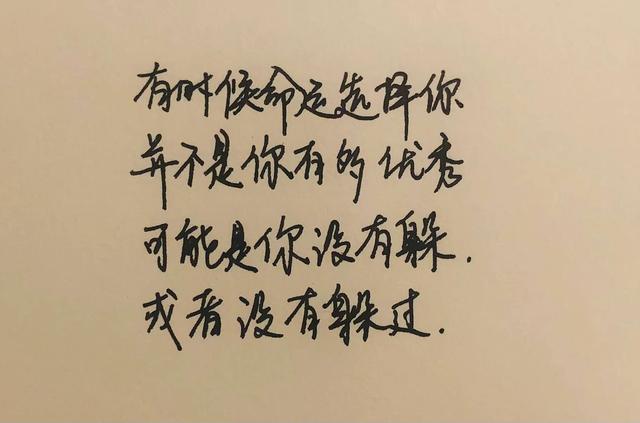 有时候命运选择你
并不是你有的优秀
可能是你没有躲.
或者没有躲过.